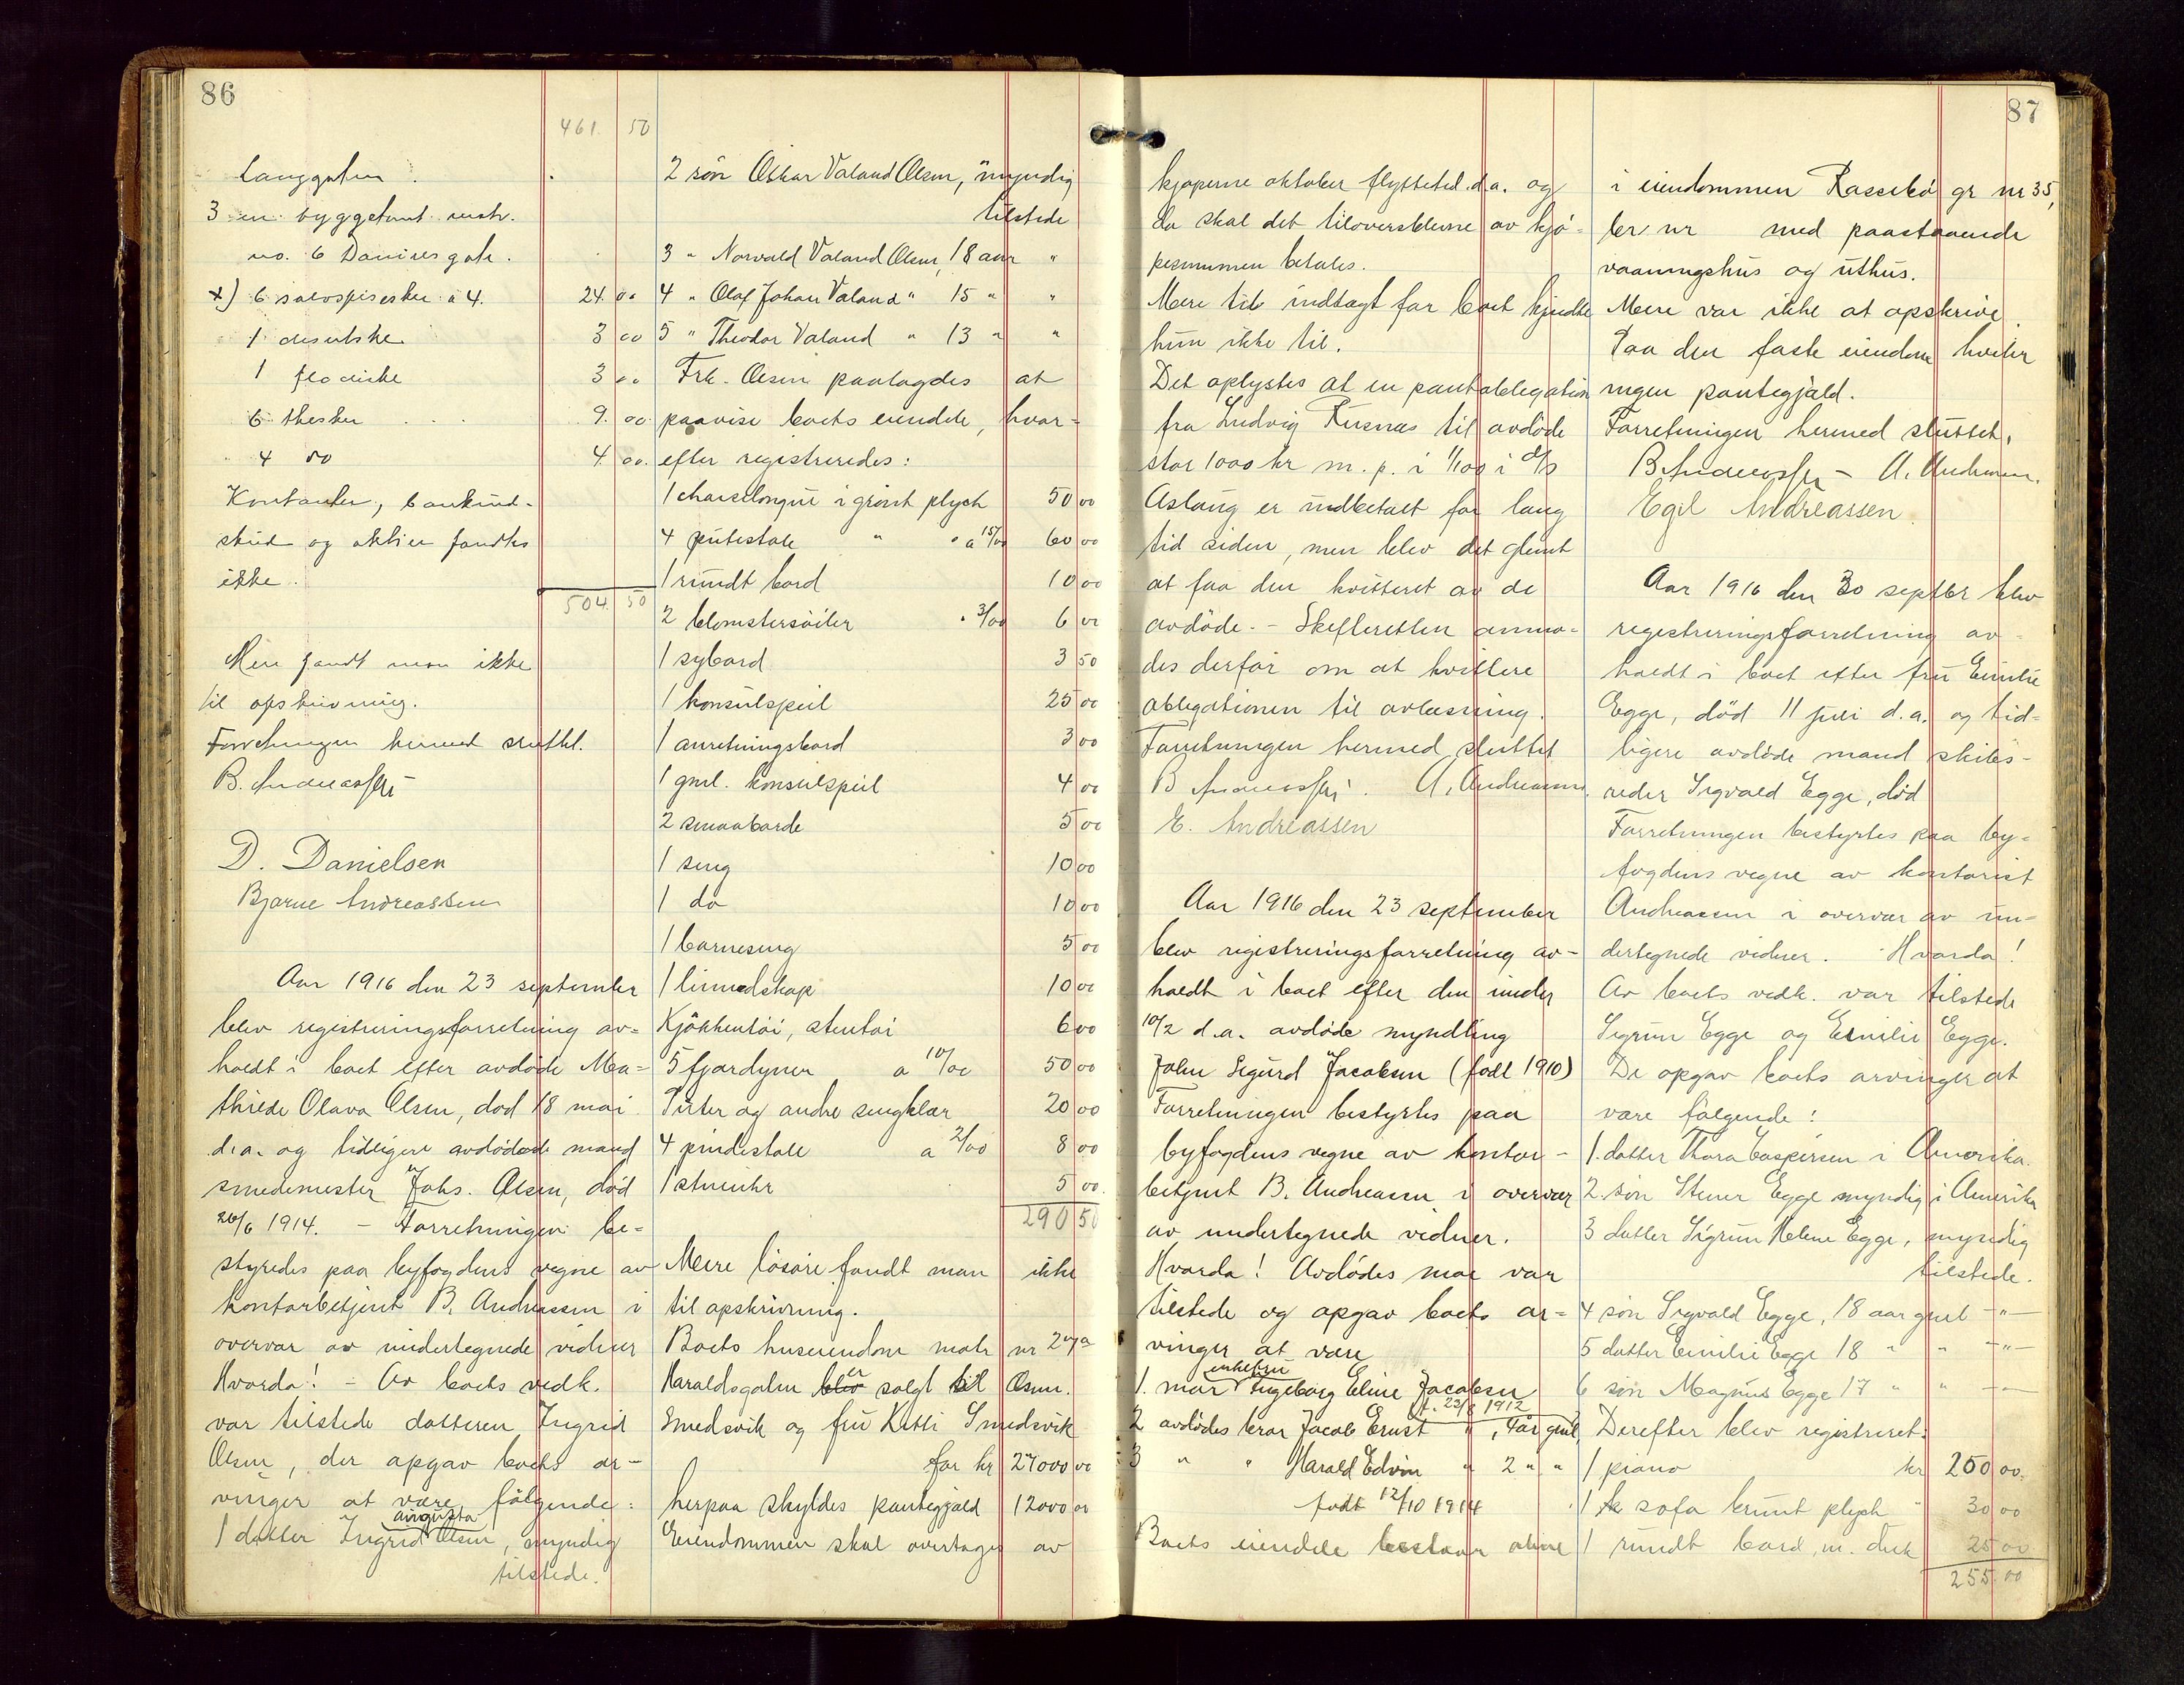 86
461. 50
Langgaten
3 en byggetomt matr.
no. 6 Danisesgate.
x) 6 sølvspiseskeer a 4. 24 00
1 desertske 3 00
1 fløteske 3 00
6 theskeer 9. 00
4 do 4. 00.
Kontanter, bankind-
skud og aktier fandtes
ikke.
504. 50
Mere fandt man ikke
til opskrivning.
Forretningen hermed sluttet.
B. Andreassen
D. Danielsen
Bjarne Andreassen
Aar 1916 den 23 september
blev registreringsforretning av-
holdt i boet efter avdøde Ma-
thilde Olava Olsen, død 18 mai
d.a. og tidligere avdødede mand
smedemester Johs. Olsen, død
26/6 1914. - Forretningen be-
styredes paa byfogdens vegne av
kontorbetjent B. Andreassen i
overvær av undertegnede vidner
Hvorda! - Av boets vedk.
var tilstede datteren Ingrid
Olsen, der opgav boets ar-
vinger at være følgende:
augusta
1 datter Ingrid Olsen, myndig
tilstede.
2 søn Oskar Valand Olsen, myndig
tilstede
3 " Norvald Valand Olsen, 18 aar "
4 " Olaf Johan Valand " 15 " "
5 " Theodor Valand " 13 " "
Frk. Olsen paalagdes at
paavise boets eiendele, hvor-
efter registreredes:
1 chaiselongue i grønt plych 50 00
4 putestole " " a 15/00 60 00
1 rundt bord 10 00
2 blomstersøiler " 3/00 6 00
1 sybord 3 50
1 konsulspeil 25 00
1 anretningsbord 3 00
1 gml. konsulspeil 4 00
2 smaaborde 5 00
1 seng 10 00
1 do 10 00
1 barneseng 5 00
1 linnedskap 10 00
Kjøkkentøi, stentøi 6 00
5 fjærdyner a 10/00 50 00
Puter og andre sengklær 20 00
4 pindestole a 2/00 8 00
1 stueuhr 5 00.
290 50
Mere løsøre fandt man ikke
til opskrivning.
Boets huseiendom matr nr 27a
er
Haraldsgaten blev solgt til Osm.
Smedsvik og fru Kitti Smedsvik
for kr 27000 00
herpaa skyldes pantegjæld 12000 00
Eiendommen skal overtages av
87
kjøperne oktober flyttetid d.a. og
da skal det tiloversblevne av kjø-
pesummen betales.
Mere til indtægt for boet kjendte
hun ikke til.
Det oplystes at en pantobligation
fra Ludvig Kusnæs til avdøde
stor 1000 kr m. p. i 1/100 i d/s
Aslaug er indbetalt for lang
tid siden, men blev det glemt
at faa den kvitteret av de
avdøde. - Skifteretten anmo-
des derfor om at kvittere
obligationen til avlæsning.
Forretningen hermed sluttet
B Andreassen. A. Andreassen.
E. Andreassen
Aar 1916 den 23 september
blev registreringsforretning av-
holdt i boet efter den under
10/2 d.a. avdøde myndling
John Sigurd Jacobsen (født 1910)
Forretningen bestyrtes paa
byfogdens vegne av kontor-
betjent B. Andreassen i overvær
av undertegnede vidner.
Hvorda! Avdødes mor var
tilstede og opgav boets ar-
vinger at være
enkefru
1. mor Ingeborg Eline Jacobsen
f. 23/8 1912
2 avdødes bror Jacob Ernst " , 4 år gml.
3 " " Harald Edvin " 2 " "
født 12/10 1914
Boets eiendele bestaar alene
i eiendommen Rassebø gr nr 35,
br. nr med paastaaende
vaaningshus og uthus.
Mere var ikke at opskrive.
Paa den faste eiendom hviler
ingen pantegjæld.
Forretningen hermed sluttet,
B Andreassen - A. Andreassen.
Egil Andreassen
Aar 1916 den 30 septbr blev
registreringsforretning av-
holdt i boet efter fru Emilie
Egge, død 11 juli d.a. og tid-
ligere avdøde mand skibs-
reder Sigvald Egge, død
Forretningen bestyrtes paa by-
fogdens vegne av kontorist
Andreassen i overvær av un-
dertegnede vidner. Hvorda!
Av boets vedk. var tilstede
Sigrun Egge og Emilie Egge.
De opgav boets arvinger at
være følgende:
1. datter Thora Caspersen i Amerika.
2. søn Stener Egge myndig i Amerika
3 datter Sigrun Helene Egge, myndig
tilstede.
4 søn Sigvald Egge, 18 aar gml -"-
5 datter Emilie Egge 18 " " -"-
6 søn Magnus Egge 17 " " -"-
Derefter blev registreret:
1 piano kr 200 00.
1 sofa brunt plych " 30 00
1 rundt bord, m. duk 25 00
255 00